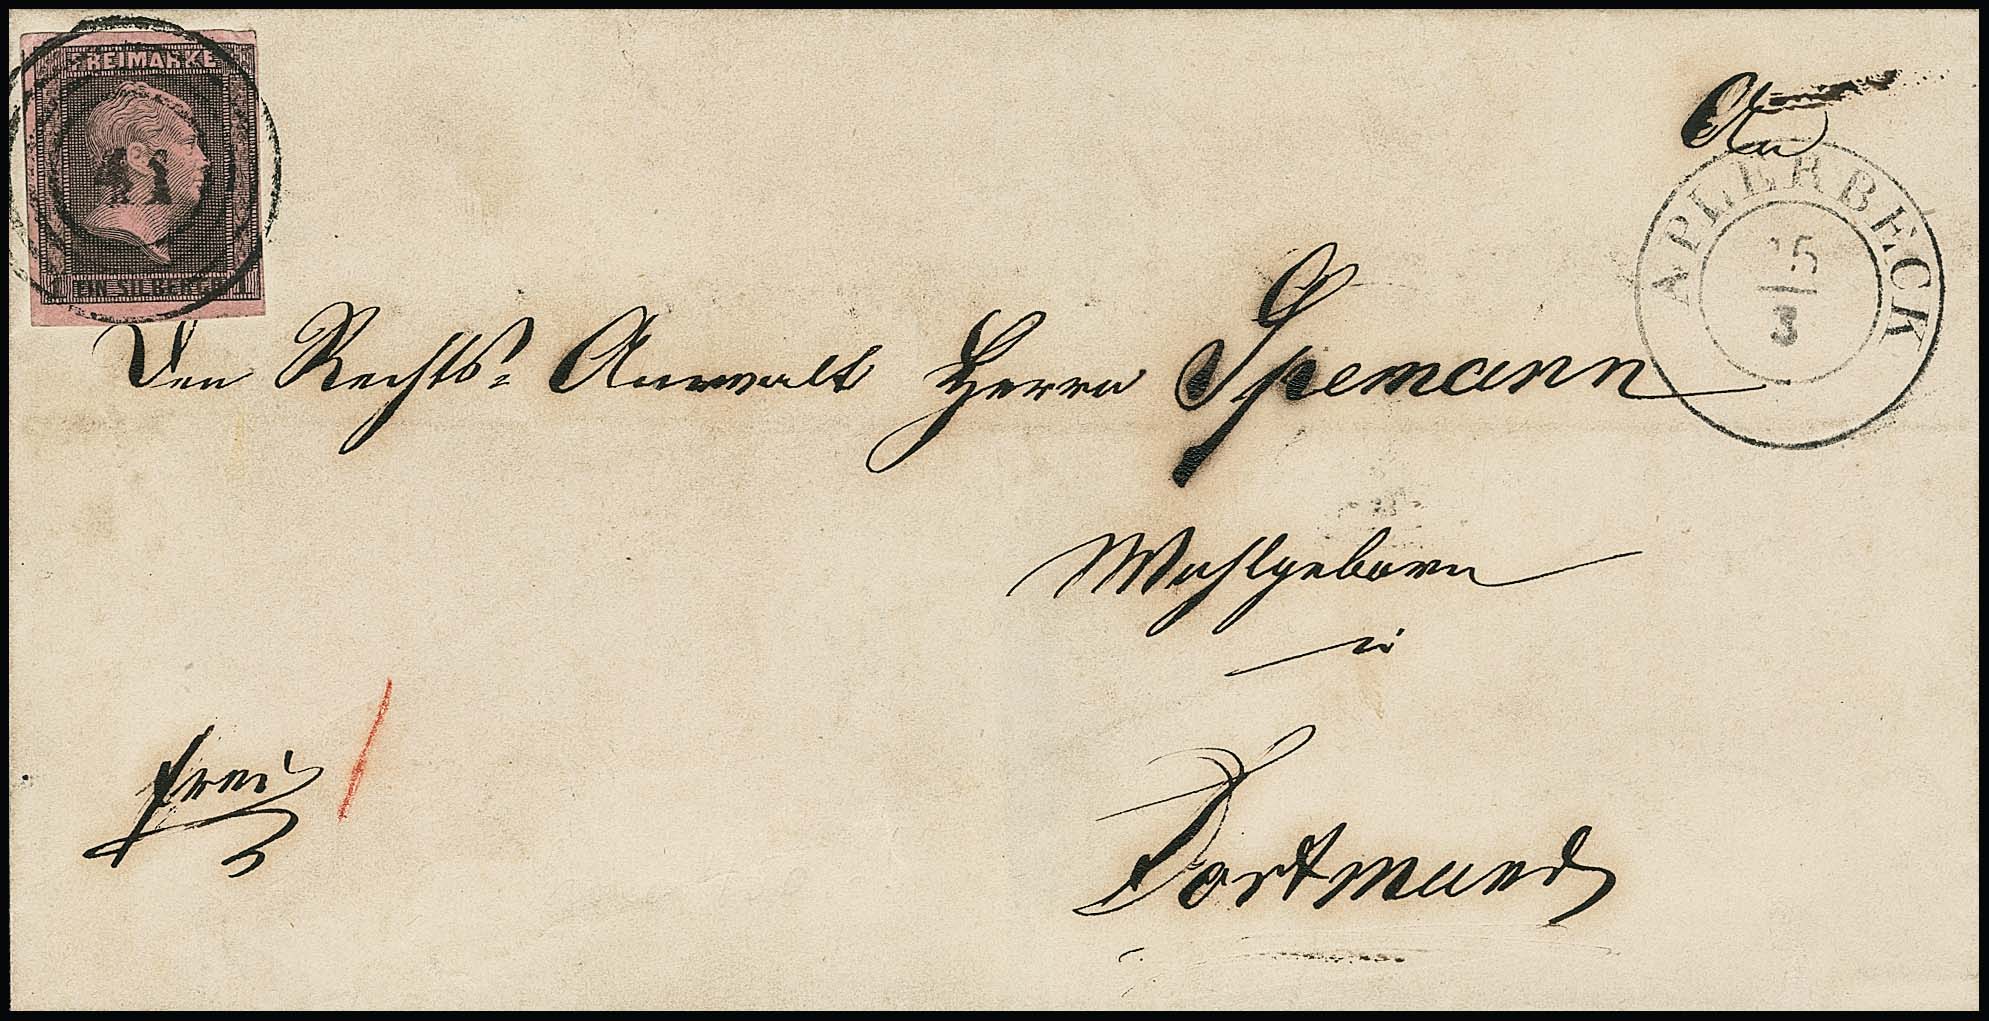 FREIMARKE
41
1 EIN SILBERGR. 1
An
APLERBECK
15
3
Den Rechts-Anwalt Herrn Spemann
Wohlgeborn
in
frei
Dortmund